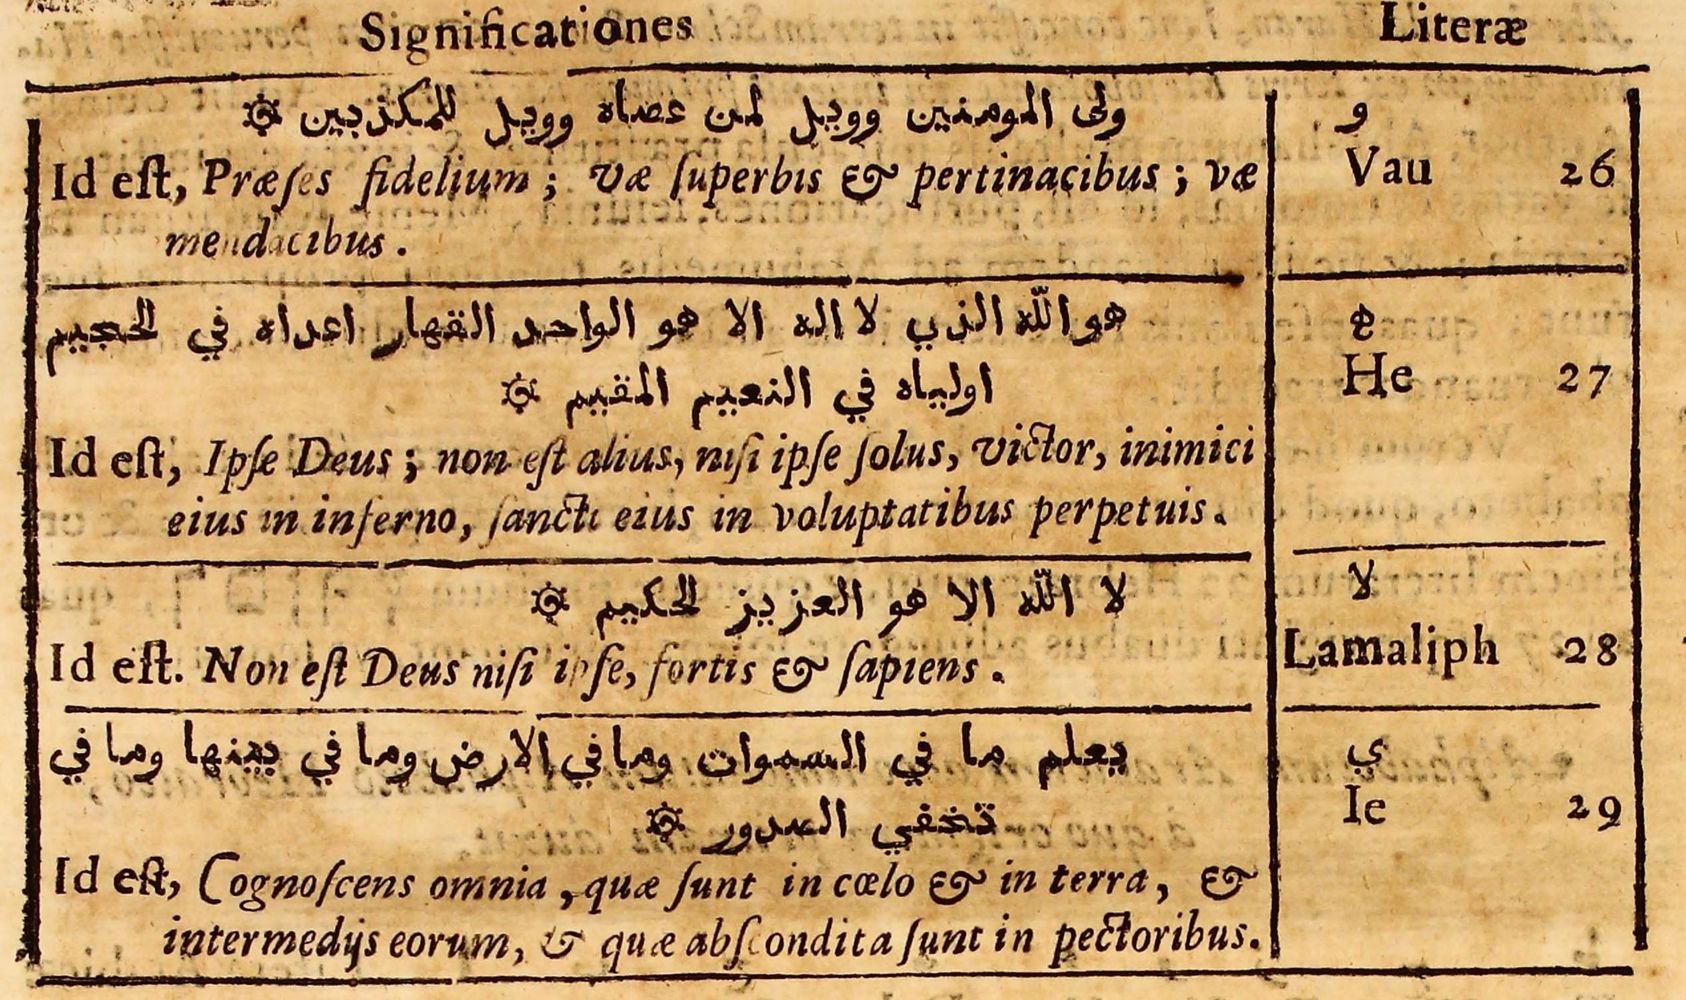 Significationes Literæ
ولى المومنين وويل لمن عصاه وويل للمكذبين و
Id eſt, Præſes fidelium ; væ ſuperbis & pertinacibus ; væ Vau 26
mendacibus .
هو اللّه الذي لا اله الا هو الواحد القهار اعداه في الحجيم ه
اولياه في النعيم المقيم He 27
Id eſt, Ipſe Deus ; non eſt alius, niſi ipſe ſolus, victor, inimici
eius in inferno, ſancti eius in voluptatibus perpetuis .
لا اللّه الا هو العزيز الحكيم لا
Id eſt. Non eſt Deus niſi ipſe, fortis & ſapiens . Lamaliph 28
يعلم ما في السموات وما في الارض وما في بينها وما في ي
تخفي الصدور Ie 29
Id eſt, Cognoſcens omnia , quæ ſunt in cœlo & in terra, &
intermedijs eorum, & quæ abſcondita ſunt in pectoribus.